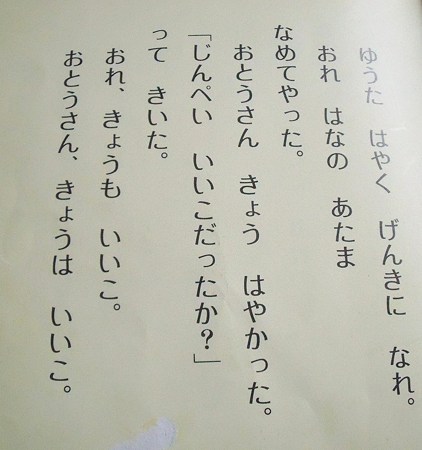 ゆうた はやく げんきに なれ。
おれ はなの あたま
なめてやった。
おとうさん きょう はやかった。
「じんぺい いいこだったか？」
って きいた。
おれ、きょうも いいこ。
おとうさん、きょうは いいこ。